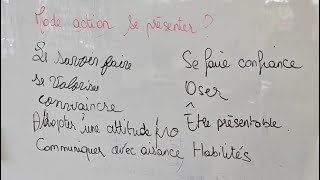 Mode action se présenter ?
Le savoir faire
se valoriser
convaincre
Adopter une attitude pro
Communiquer avec aisance, Habilités
Se faire confiance
Oser
Être présentable.